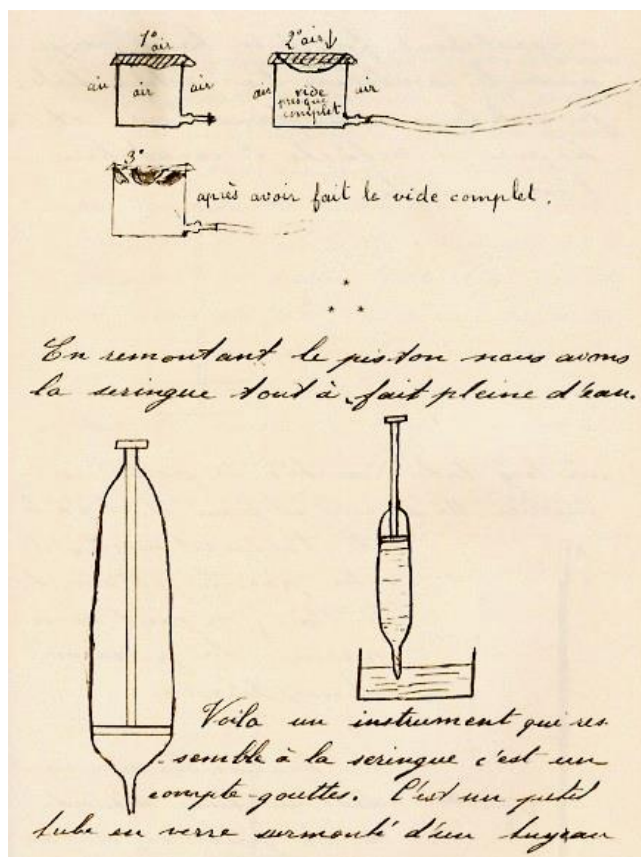 1° air
air air air
2° air
air vide presque complet air
3°
après avoir fait le vide complet.
En remontant le piston nous avons
la seringue tout à fait pleine d'eau.
Voila un instrument qui res
semble à la seringue c'est un
compte-gouttes. C'est un petit
tube en verre surmonté d'un tuyau